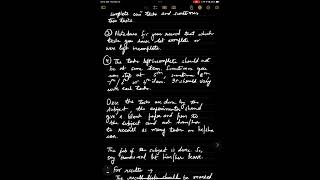 complete can tasks and sometimes
two tasks
③ Note down for your record that which
tasks you have let complete or
were left incomplete.
④ The tasks left incomplete should not
be at same item. Sometimes you
can stop at 5th, sometimes 6th,
7th / 8th or 4th item. It should vary
with each task.
Once the tasks are done by the
subject the experimenter should
give a blank paper and pen to
the subject and ask him/her
to recall as many tasks as he/she
can.
The job of the subject is done. So,
say thanks and let him/her leave.
For results →
The
should be marked